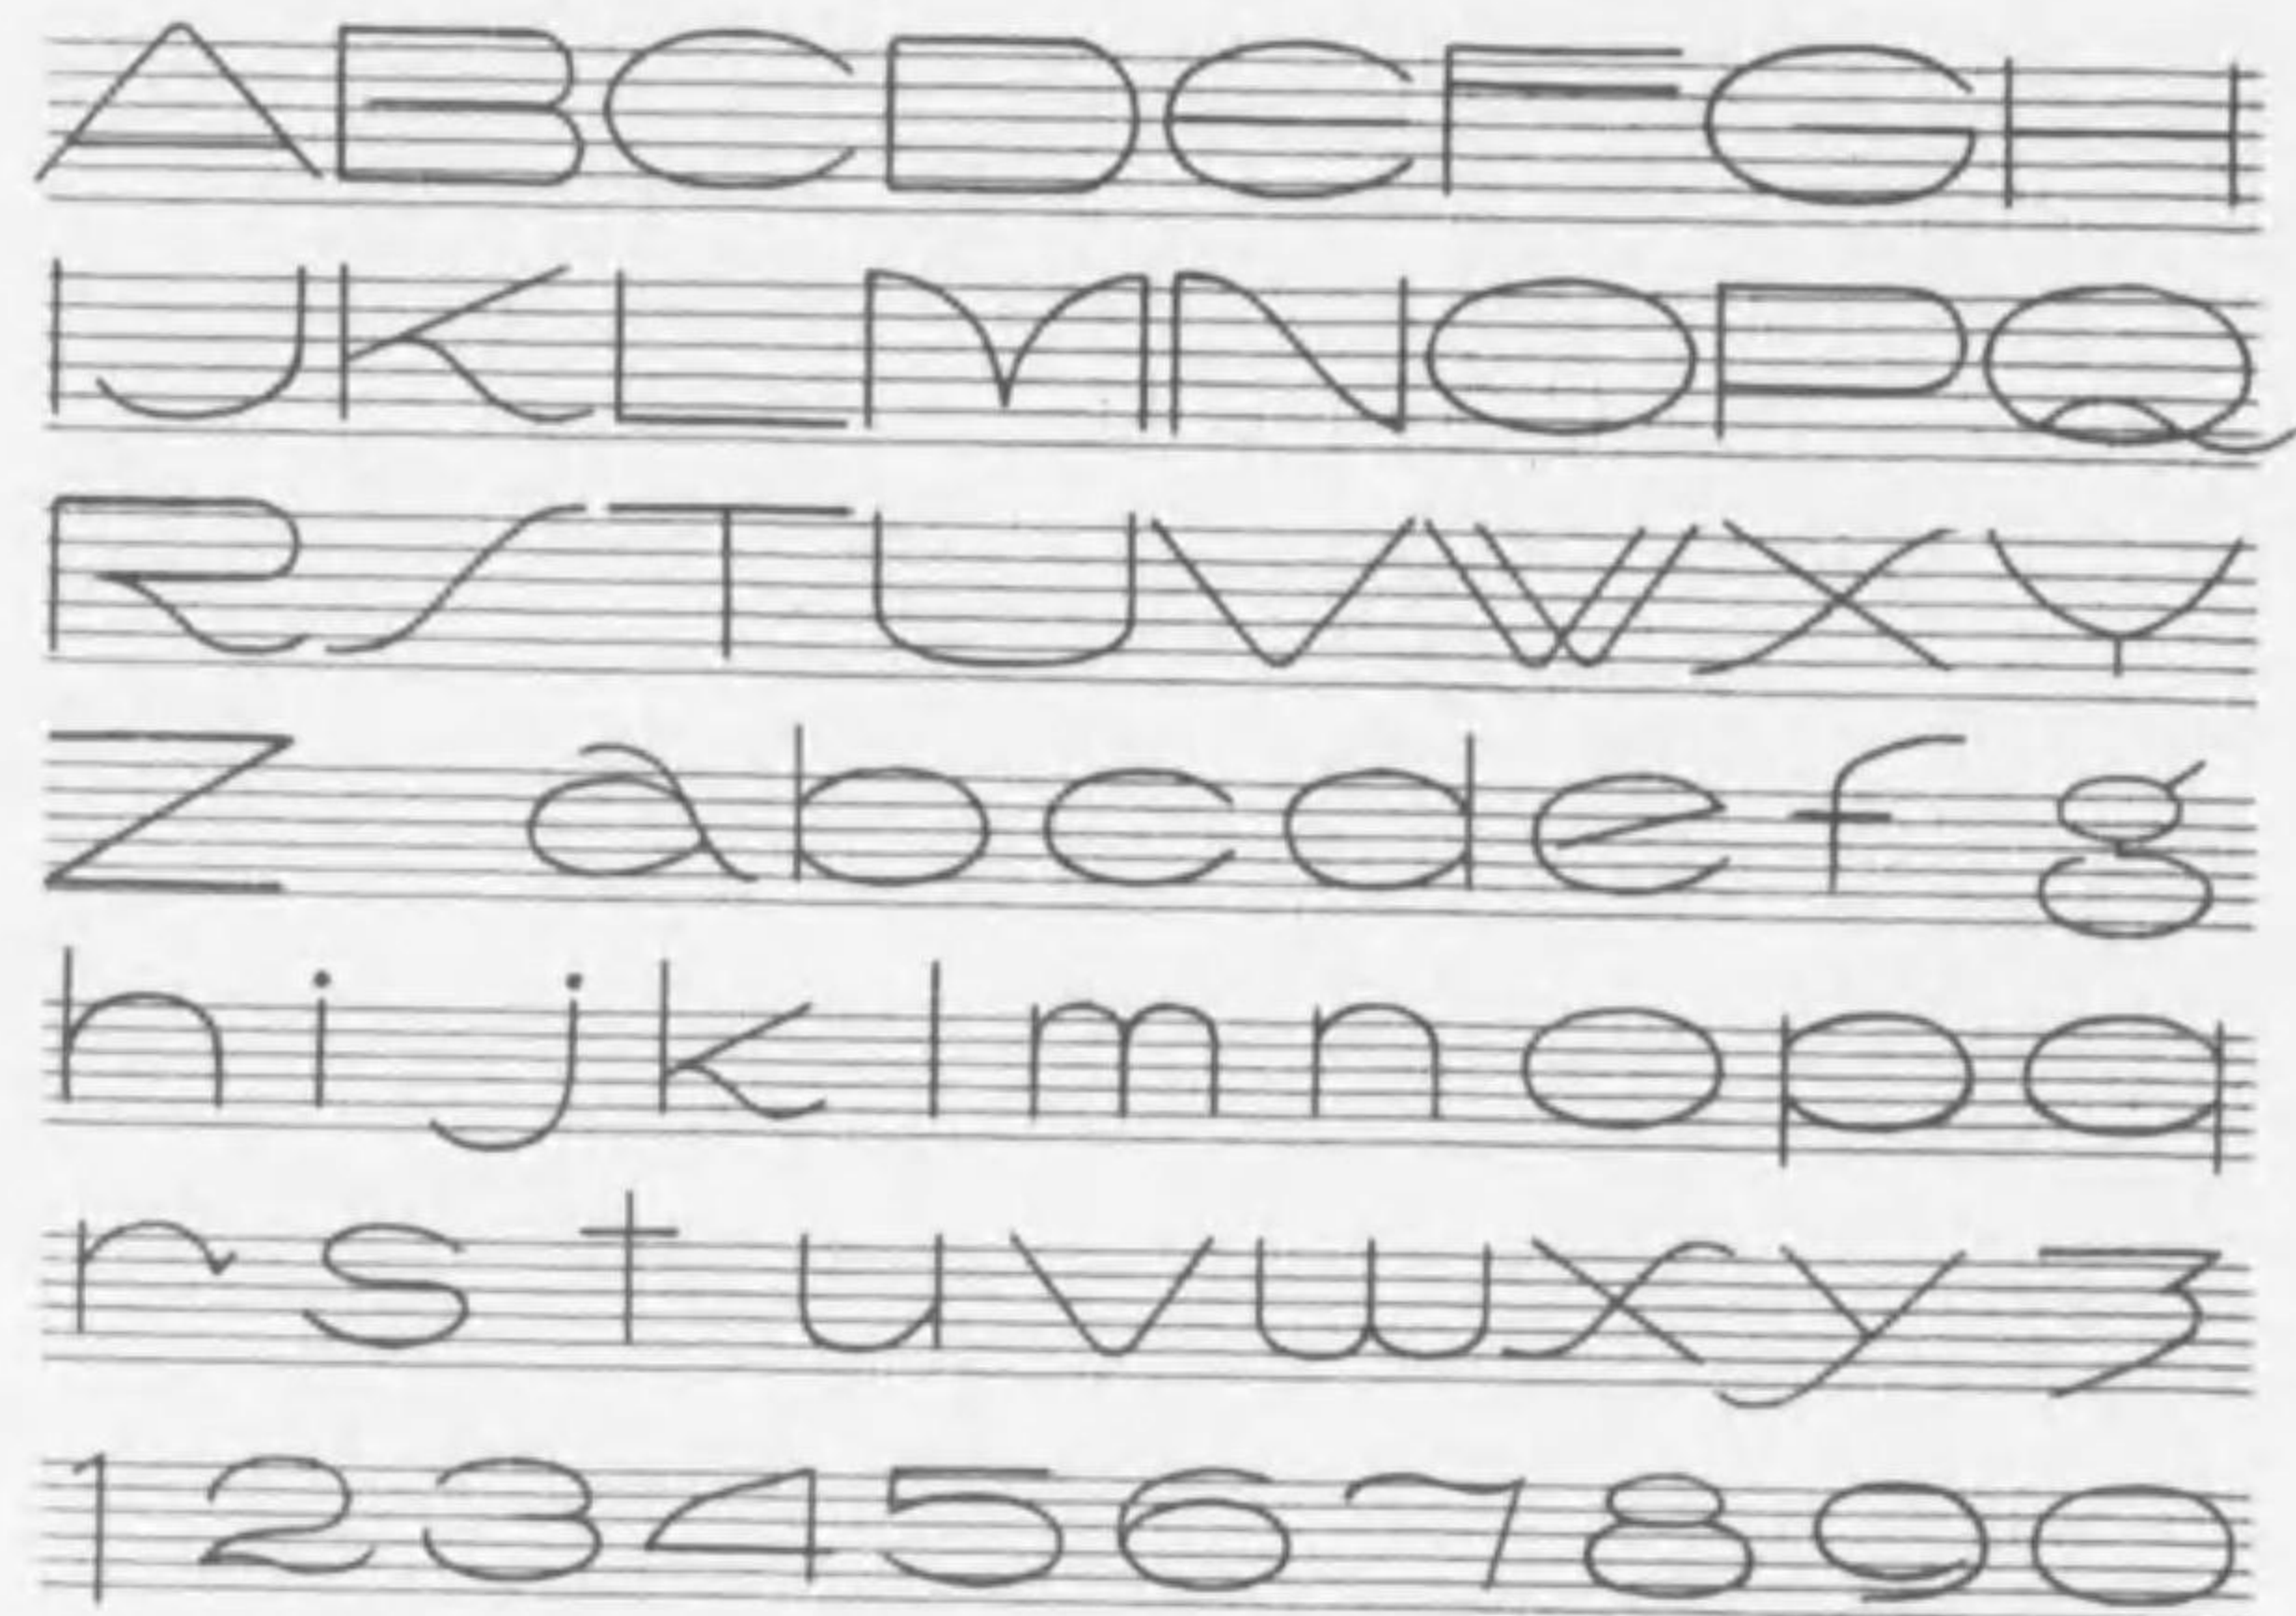 A B C D E F G H
I J K L M N O P Q
R S T U V W X Y
Z a b c d e f g
h i j k l m n o p q
r s t u v w x y z
1 2 3 4 5 6 7 8 9 0